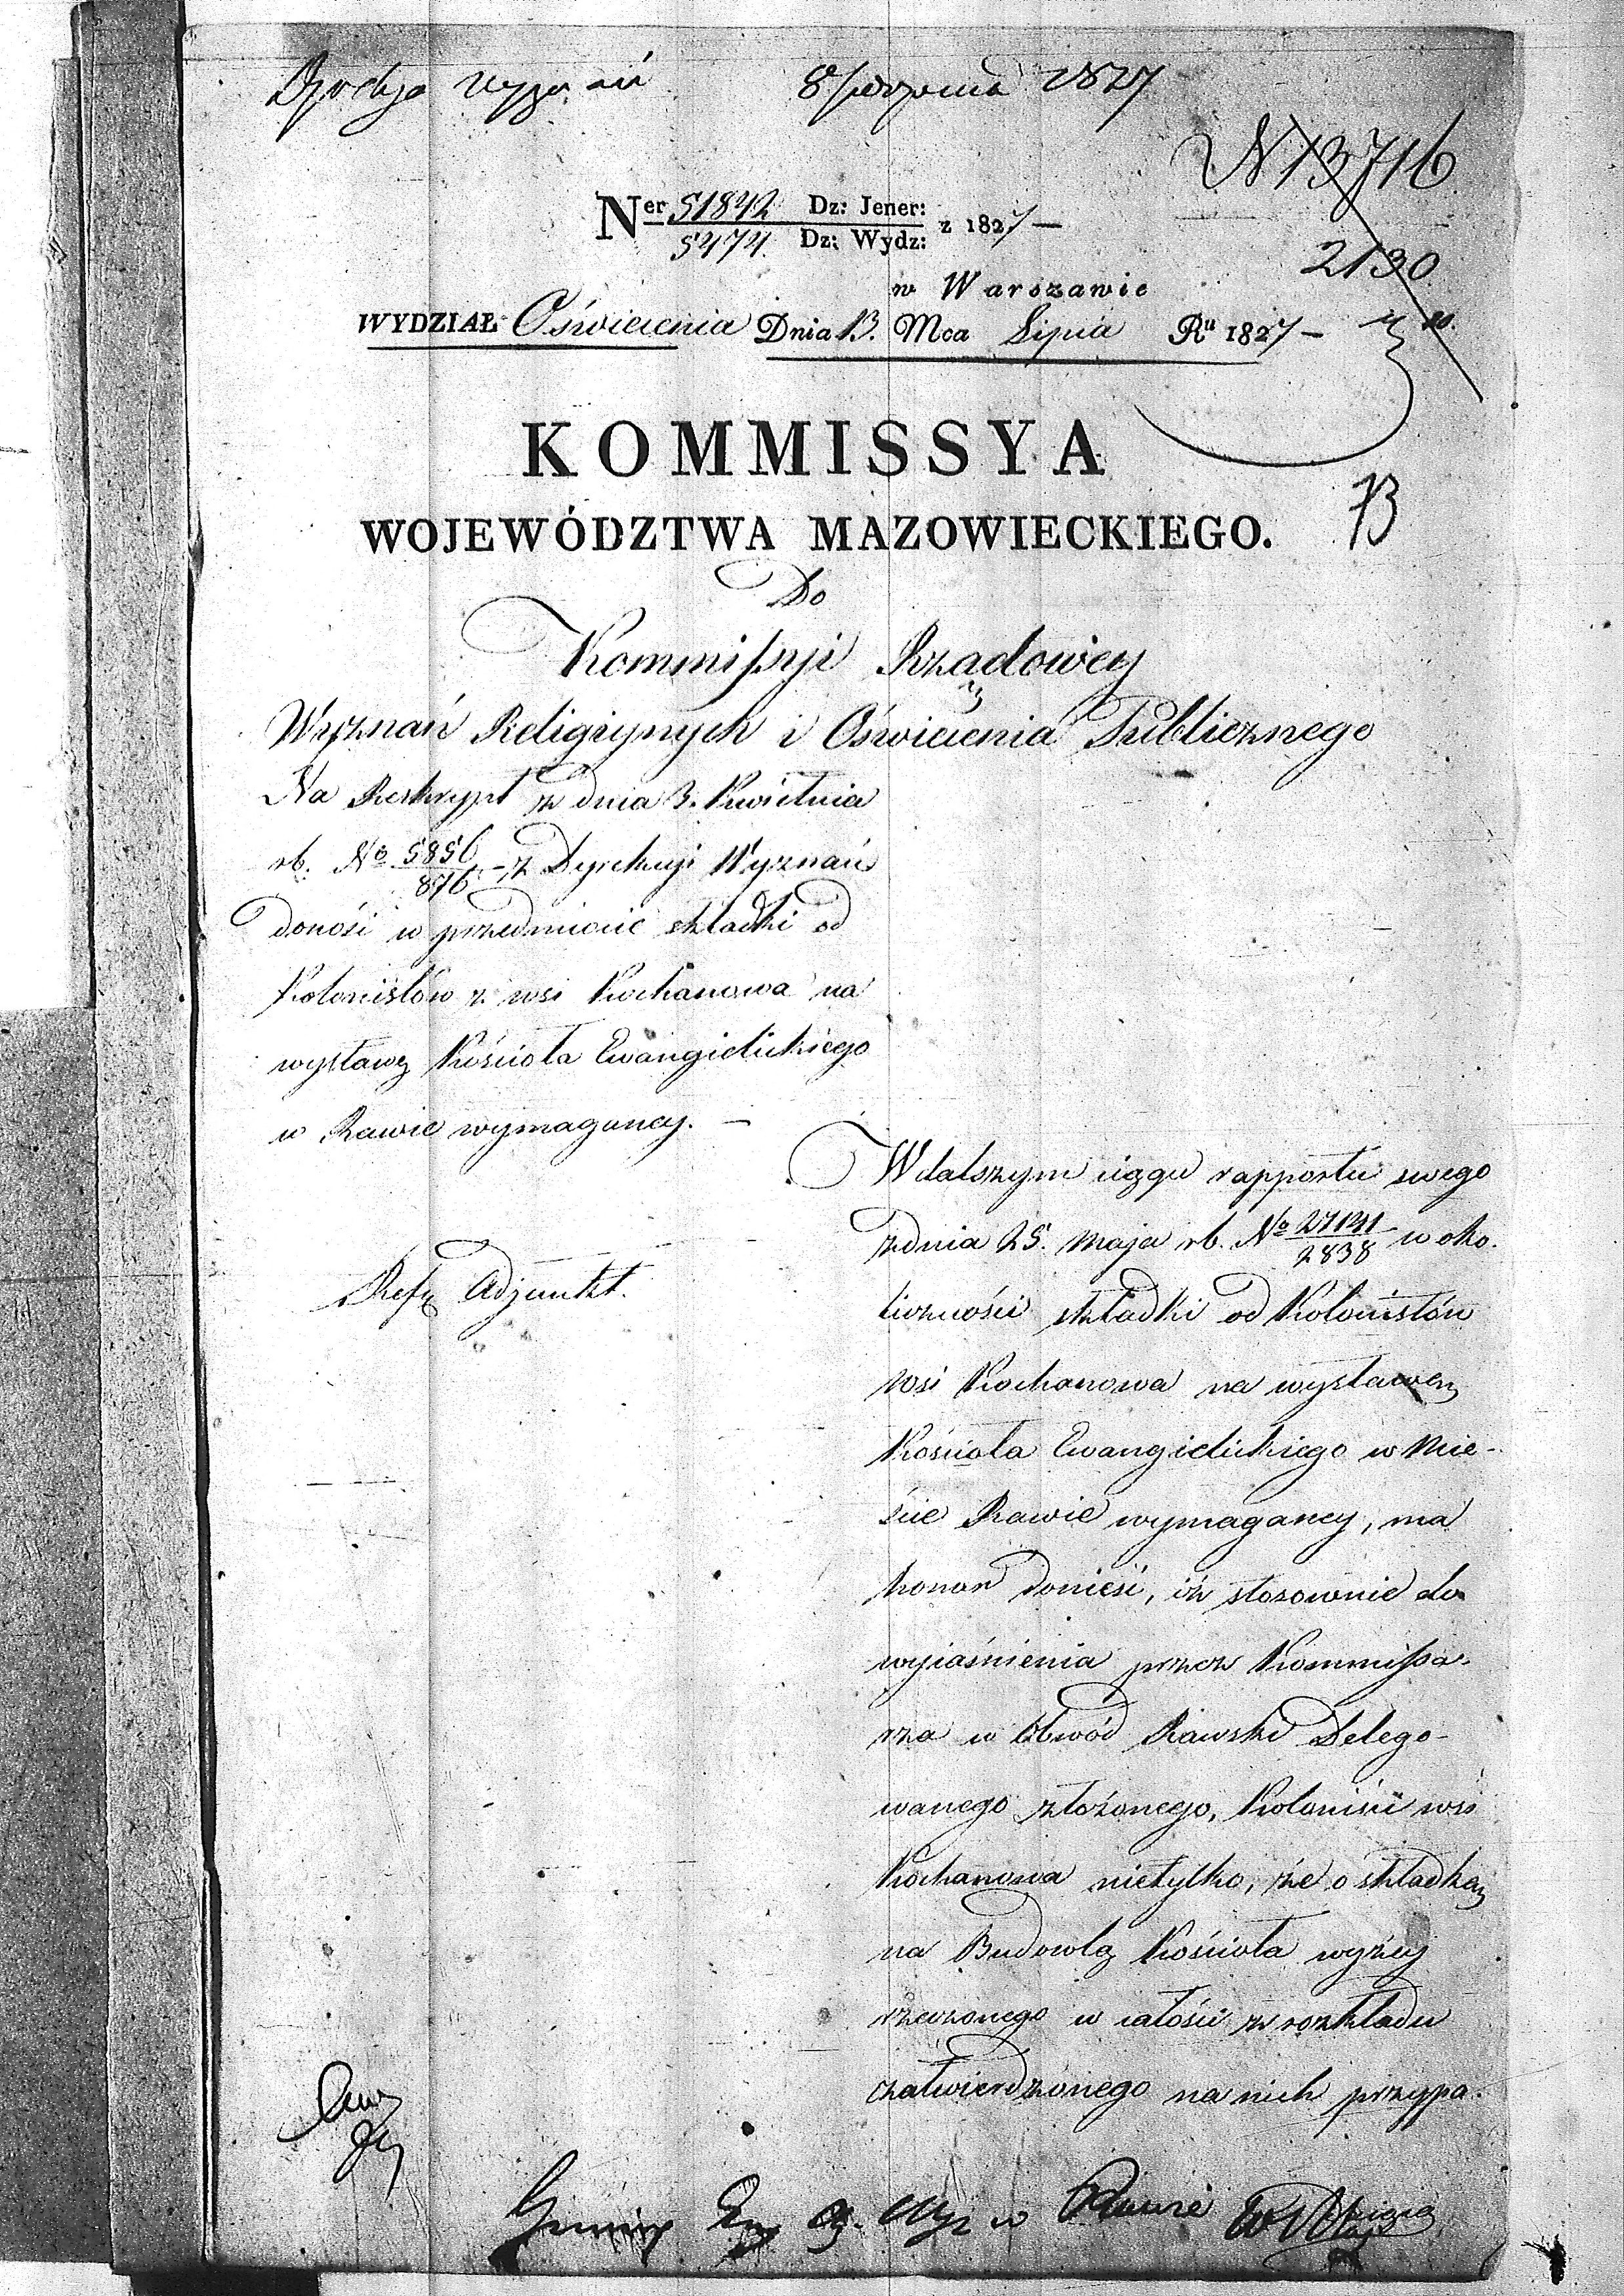 Dyrekcya Wyznań 8 Sierpnia 1827
N 13716
Ner 51842 Dz: Jener: z 1827 —
5474. Dz: Wydz:
2130
w Warszawie
WYDZIAŁ Oświecenia Dnia 13. Mca Lipca Ru 1827 —
KOMMISSYA
WOJEWÓDZTWA MAZOWIECKIEGO.
73
Do
Kommissyi Rządowey
Wyznań Religiynych i Oświecenia Publicznego
Na Reskrypt z dnia 3. Kwietnia
rb. No 5856/876 z Dyrekcyi Wyznań
donosi w przedmiocie składki od
Kolonistów z wsi Kochanowa na
wystawę Kościoła Ewangielickiego
w Rawie wymaganey. —
W dalszym ciągu rapportu swego
z dnia 25. Maja rb. No 27141/2838 w oko-
liczności składki od Kolonistów
wsi Kochanowa na wystawę
Kościoła Ewangielickiego w Mie-
ście Rawie wymaganey, ma
honor donieść, iż stosownie do
wyiaśnienia przez Kommissa-
rza w Obwód Rawski Delego-
wanego złożonego, Koloniści wsi
Kochanowa nietylko, że o składkę
na Budowlę Kościoła wyżey
rzeczonego w całości z rozkładu
zatwierdzonego na nich przypa-
Refr Adjunkt.
Gminy Ew. w Rawie